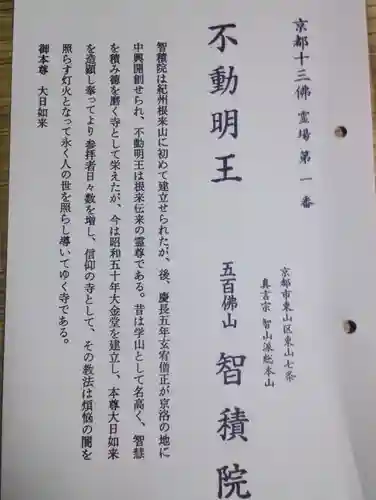 京都十三佛 霊場 第一番
不動明王
京都市東山区東山七条
真言宗 智山派総本山
五百佛山 智積院
智積院は紀州根来山に初めて建立せられたが、後、慶長五年玄宥僧正が京洛の地に
中興開創せられ、不動明王は根来伝来の霊尊である。昔は学山として名高く、智慧
を積み徳を磨く寺として栄えたが、今は昭和五十年大金堂を建立し、本尊大日如来
を造顕し奉ってより参拝者日々数を増し、信仰の寺として、その教法は煩悩の闇を
照らす灯火となって永く人の世を照らし導いてゆく寺である。
御本尊 大日如来